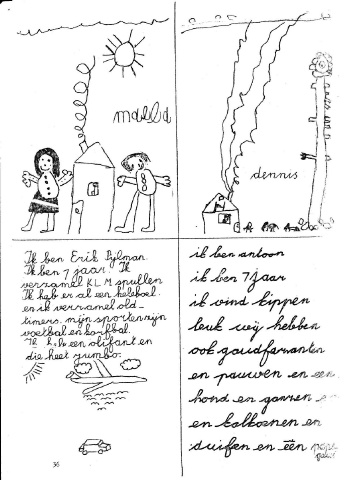 maeed
dennis
Ik ben Erik Sylman.
Ik ben 7 jaar. Ik
verzamel KLM spullen
Ik heb er al een heleboel.
en ik verzamel old-
timers. mijn sporten zijn
voetbal en korfbal.
Ik heb een olifant en
die heet jumbo.
ik ben antoon
ik ben 7 jaar
ik vind kippen
leuk wij hebben
ook goudfazanten
en pauwen en een
hond en ganzen en
en kalkoenen en
duifen en één
36